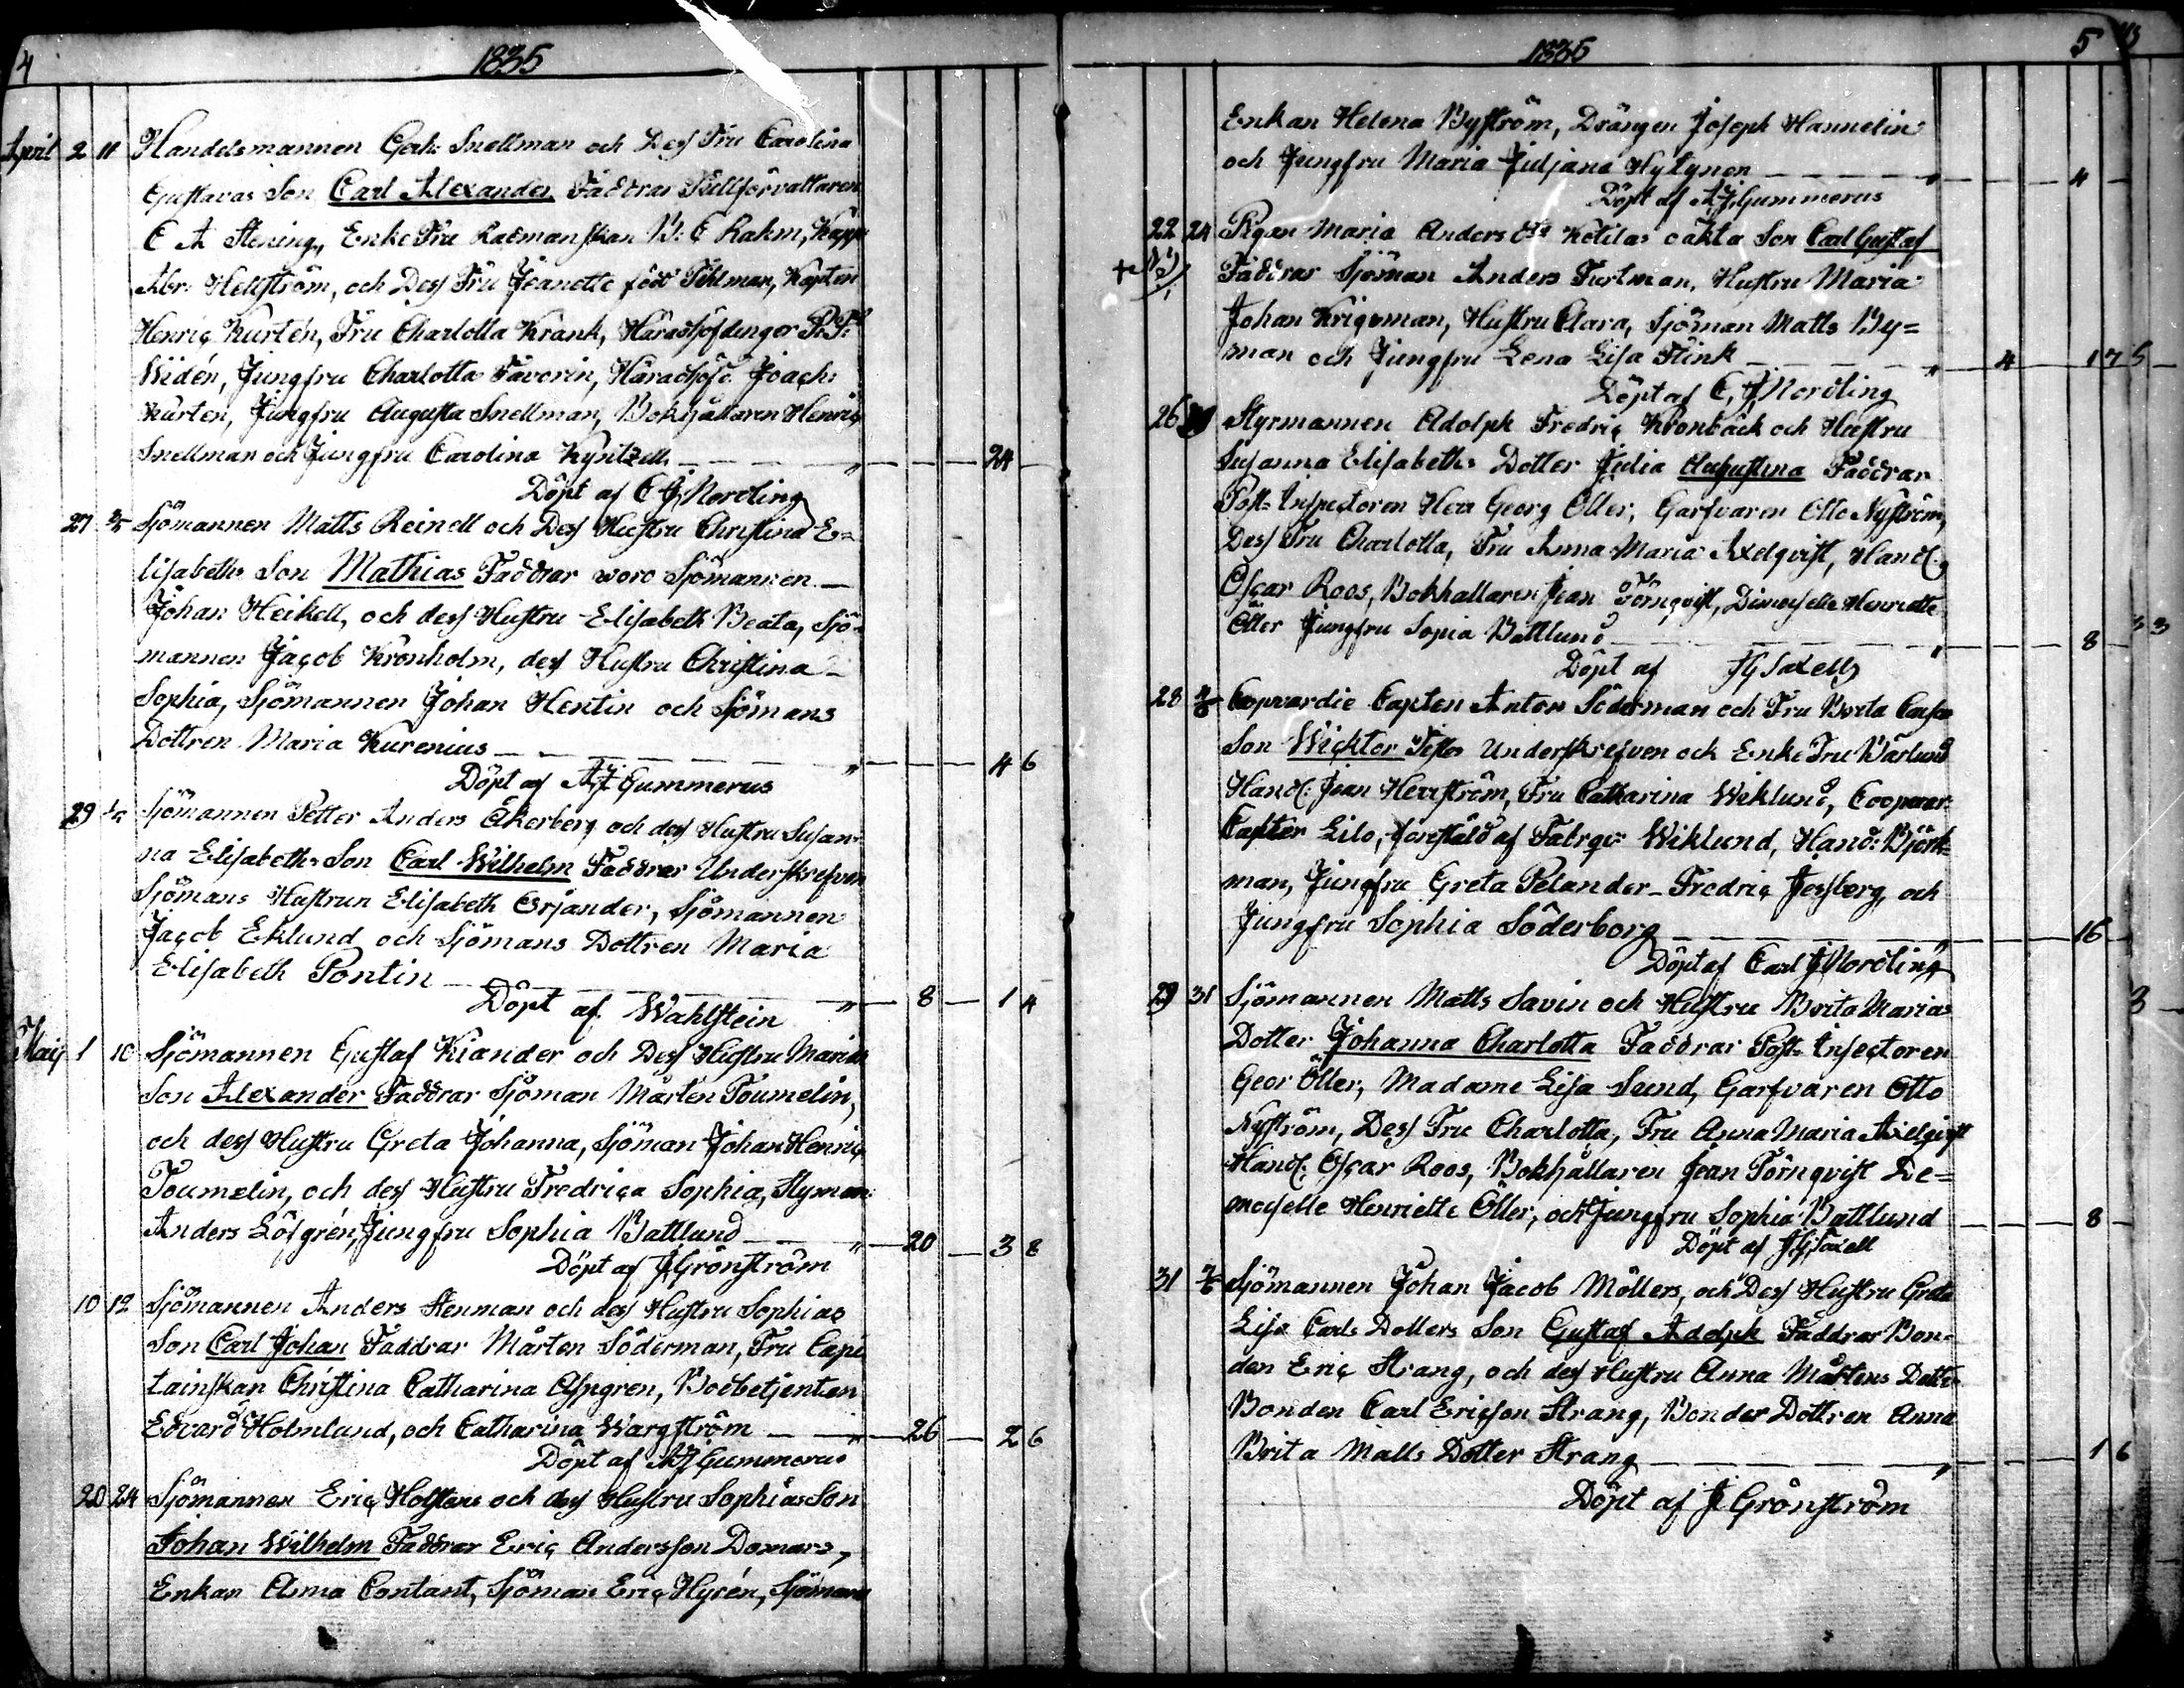 4
1835
April 2 11 Handelsmannen Gerh: Snellman och Dess Fru Carolina
Gustavas Son Carl Alexander Faddrar Tullförvaltaren
C A Stening, Enke Fru Rådmanskan B: C Rahm, Capt
Abr: Hellström, och Dess Fru Jeanette född Tihlman, Kapten
Henric Kurtén, Fru Charlotta Krank, Häradshöfdinger
Widén, Jungfru Charlotta Favorin, Häradshöfd: Joach:
Kurtén, Jungfru Augusta Snellman, Bokhållaren Henric
Snellman och Jungfru Carolina Kyntzell " 24
Döpt af C J Nordling
27 3/5 Sjömannen Matts Reinell och Dess Hustru Christina E=
lisabeths Son Mathias Faddrar woro Sjömannen
Johan Heikell, och dess Hustru Elisabeth Beata, Sjö=
mannen Jacob Kronholm, dess Hustru Christina
Sophia, Sjömannen Johan Hentin och Sjömans
Dottren Maria Kurenius " 4 6
Döpt af A J Gummerus
29 Sjömannen Petter Anders Åkerberg och dess Hustru Susan=
na Elisabeths Son Carl Wilhelm Faddrar Underskrefven
Sjömans Hustrun Elisabeth Örjander, Sjömannen
Jacob Eklund och Sjömans Dottren Maria
Elisabeth Pontin " 8 1 4
Döpt af Wahlstein
Maij 1 10 Sjömannen Gustaf Kiander och Dess Hustru Marias
Son Alexander Faddrar Sjöman Mårten Toumelin,
och dess Hustru Greta Johanna, Sjöman Johan Henric
Toumelin, och dess Hustru Fredrica Sophia, Styrman:
Anders Löfgrén, Jungfru Sophia Battlund " 20 3 8
Döpt af J Grönström
10 12 Sjömannen Anders Stenman och dess Hustru Sophias
Son Carl Johan Faddrar Mårten Söderman, Fru Capi
tainskan Christina Catharina Aspgren, Bodbetjenten
Edvard Holmlund, och Catharina Wargström " 26 2 6
Döpt af A J Gummerus
20 24 Sjömannen Eric Holstens och dess Hustru Sophias Son
Johan Wilhelm Faddrar Eric Andersson Domars,
Enkan Anna Contant, Sjöman Eric Hyrén, Sjömans
1835
5
Enkan Helena Byström, Drängen Joseph Hannelin
och Jungfru Maria Juljana Hytynen " 4
Döpt af A J Gummerus
22 24 Pigan Maria Anders Dtr Ketilas oäkta Son Carl Gustaf
Faddrar Sjöman Anders Furtman, Hustru Maria
Johan Krigsman, Hustru Clara, Sjöman Matts By=
man och Jungfru Lena Lisa Flink " 4 17
Döpt af C J Nordling
26 Styrmannen Adolph Fredric Kronback och Hustru
Susanna Elisabeths Dotter Julia Augustina Faddrar
Post-Inspectoren Herr Georg Öller, Garfvaren Otto Nyström,
Dess Fru Charlotta, Fru Anna Maria Axelqvist, Handl:
Oscar Roos, Bokhallaren Jean Törnqvist, Dimoiselle Henriette
Öller Jungfru Sopia Battlund " 8
Döpt af J G Saxell
28 Coopvardie Capten Anton Söderman och Fru Brita Cajsa
Son Wicktor Test: Underskrefven och Enke Fru Barlund
Handl: Jean Herrström, Fru Catharina Wiklund, Coopvar:
Capten Lilo, föreställd af Fabrqv: Wiklund, Handl: Björk=
man, Jungfru Greta Pelander Fredric Jessberg, och
Jungfru Sophia Söderborg " 16
Döpt af Carl J Nordling
29 31 Sjömannen Matts Savin och Hustru Brita Marias
Dotter Johanna Charlotta Faddrar Post-Insectoren
Geor Öller, Madame Lisa Sund, Garfvaren Otto
Nyström, Dess Fru Charlotta, Fru Anna Maria Axelqvist
Handl: Oscar Roos, Bokhållaren Jean Törnqvist De=
moiselle Henriette Öller, och Jungfru Sophia Battlund 8
Döpt af J G Saxell
31 Sjömannen Johan Jacob Möllers, och Dess Hustru Greta
Lisa Carls Dotters Son Gustaf Adolph Faddrar Bon=
den Eric Strang, och dess Hustru Anna Mårtens Dotter
Bonden Carl Ericson Strang, Bonde Dottren Anna
Brita Matts Dotter Strang " 1 6
Döpt af J Grönström